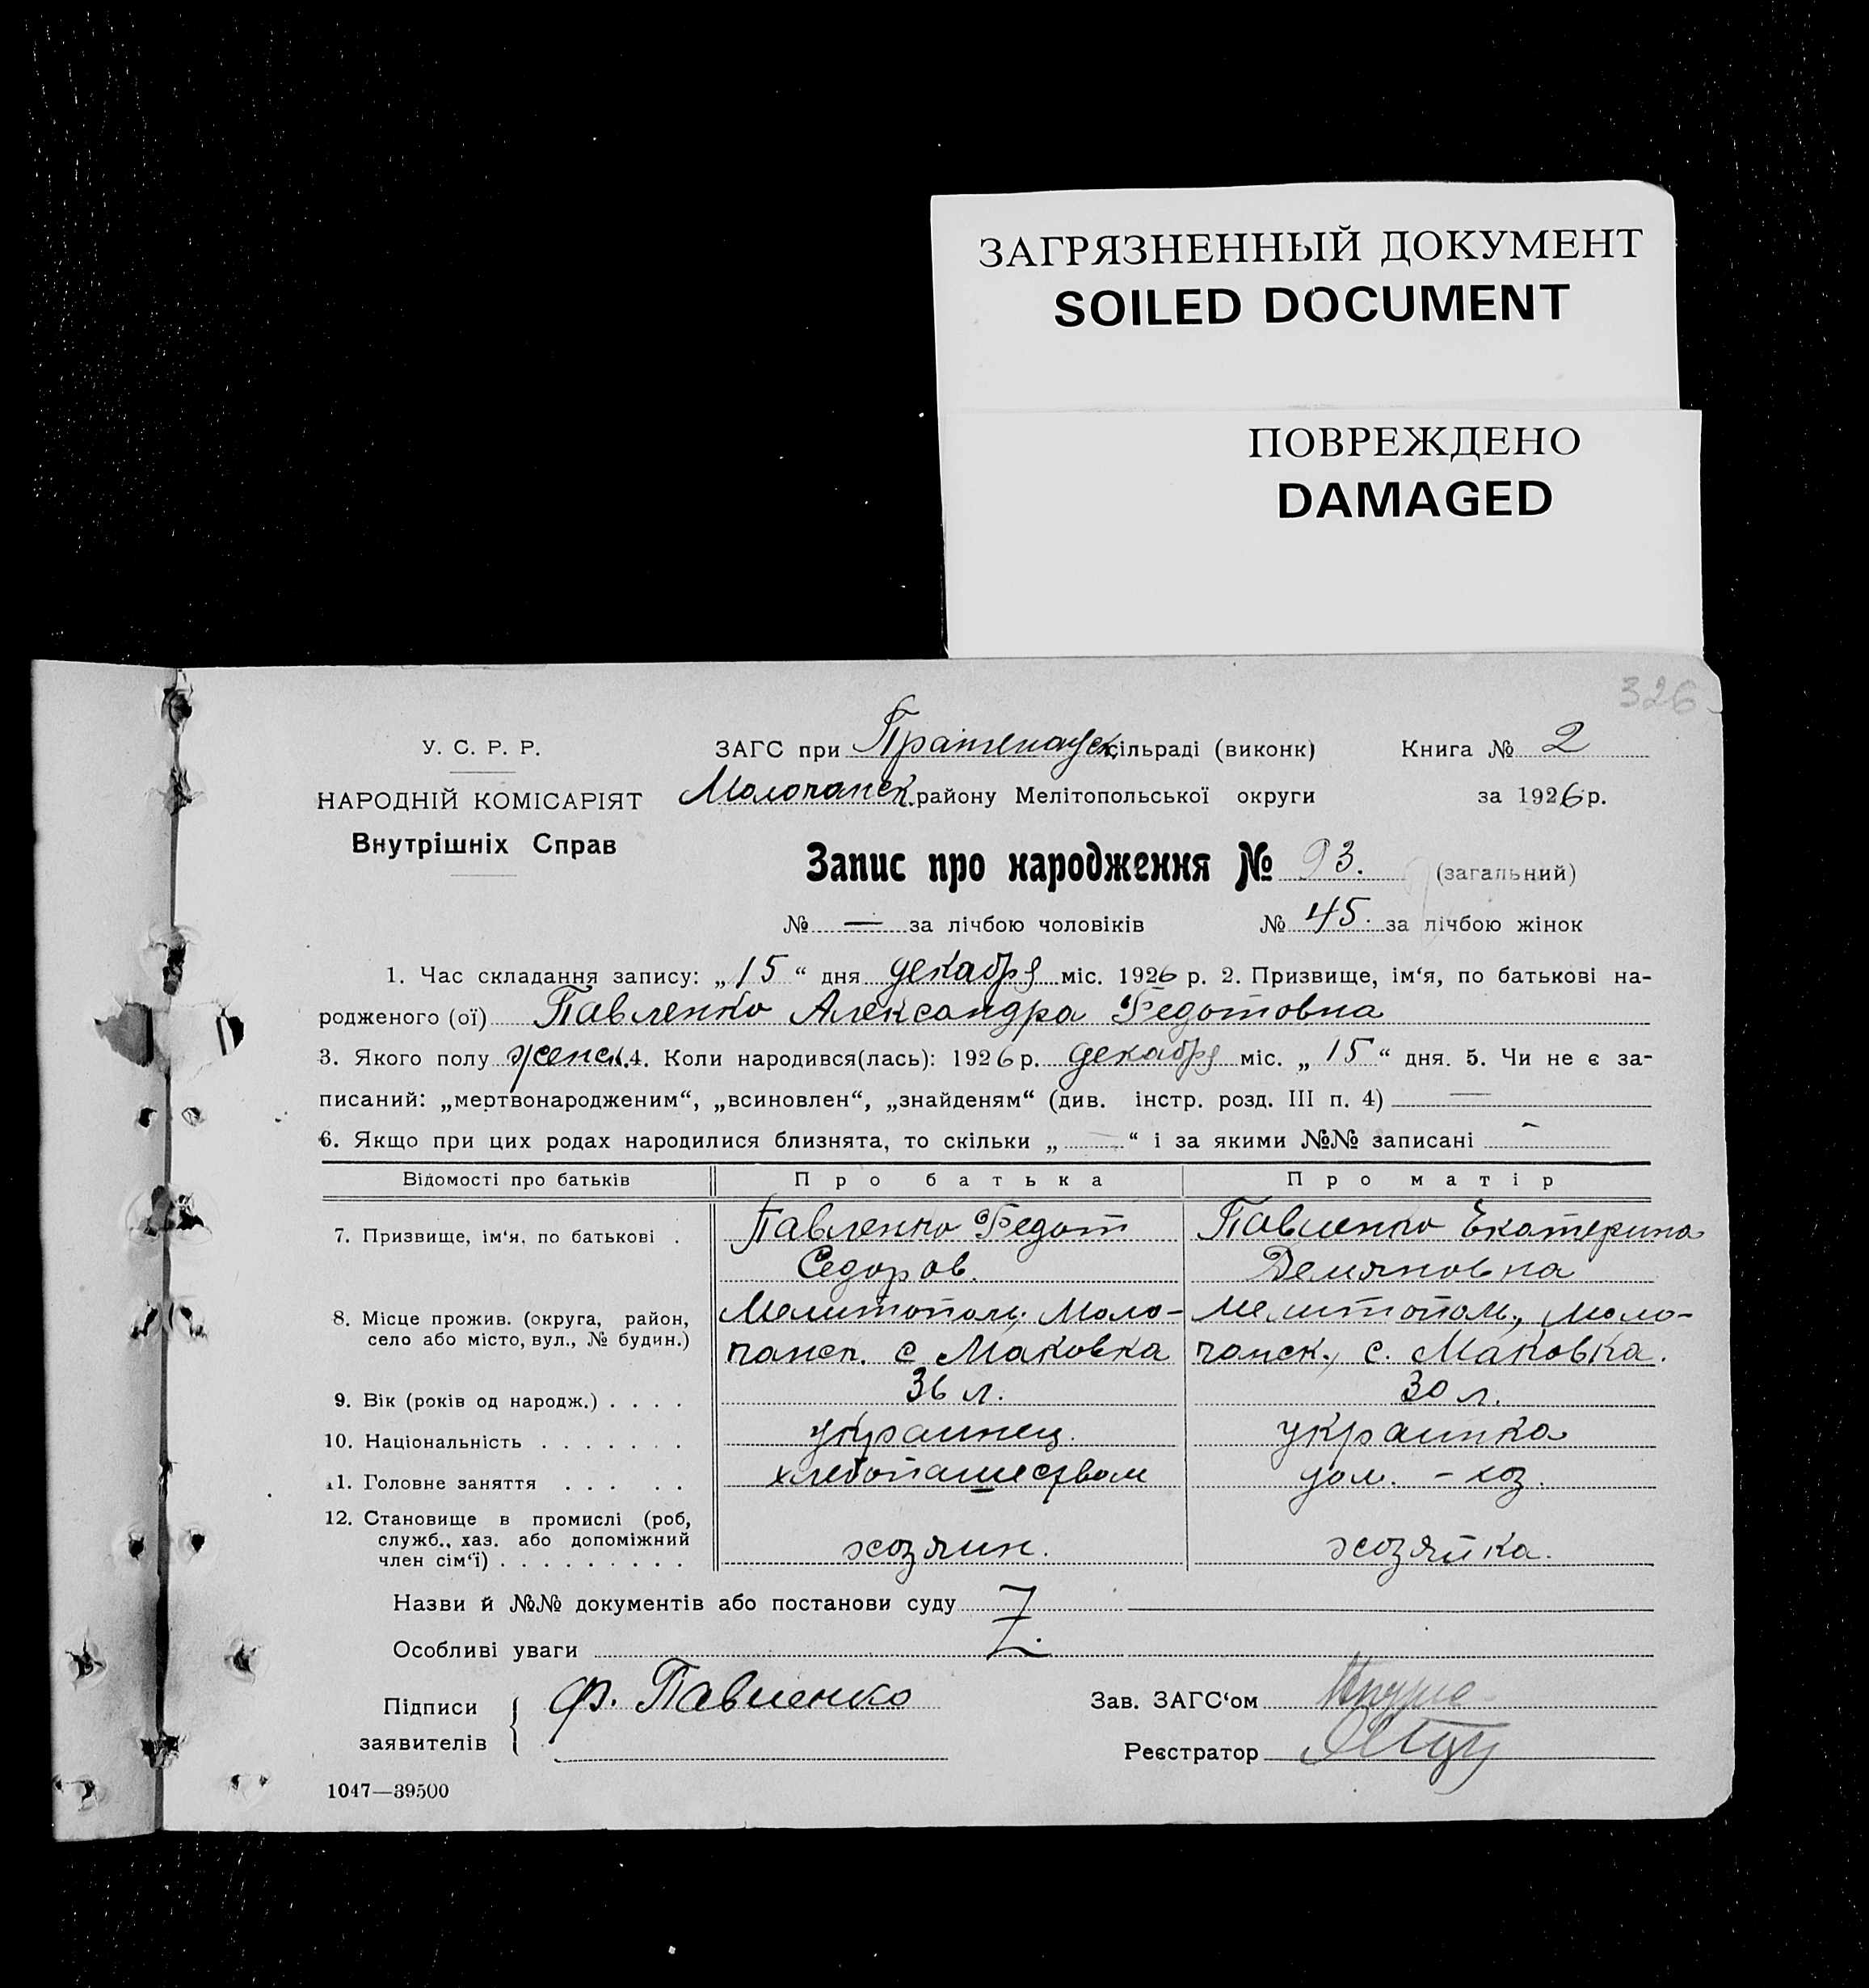 ЗАГРЯЗНЕННЫЙ ДОКУМЕНТ
SOILED DOCUMENT
ПОВРЕЖДЕНО
DAMAGED
326
У. С. Р. Р.
НАРОДНІЙ КОМІСАРІЯТ
Внутрішніх Справ
ЗАГС при сільраді (виконк) Книга № 2
Молочанск. району Мелітопольської округи за 1926 р.
Запис про народження № 93. (загальний)
№ — за лічбою чоловіків № 45. за лічбою жінок
1. Час складання запису: „15“ дня декабря міс. 1926 р. 2. Призвище, ім‘я, по батькові на-
родженого (ої) Павленко Александра Федотовна
3. Якого полу женск. 4. Коли народився(лась): 1926 р. декабря міс. „15“ дня. 5. Чи не є за-
писаний: „мертвонародженим“, „всиновлен“, „знайденям“ (див. інстр. розд. III п. 4) —
6. Якщо при цих родах народилися близнята, то скільки „—“ і за якими №№ записані —
Відомості про батьків Про батька Про матір
7. Призвище, ім‘я, по батькові . Павленко Федот Павленко Екатерина
Седоров. Демяновна
8. Місце прожив. (округа, район, Мелитополь, Моло- Мелитополь., Моло-
село або місто, вул., № будин.)
чанск. с Маковка чанск., с. Маковка.
9. Вік (років од народж.) . . . . 36 л. 30 л.
10. Національність . . . . . . . украинец. украинка
11. Головне заняття . . . . . хлебопашеством дом. - хоз.
12. Становище в промислі (роб,
служб., хаз. або допоміжний
член сім‘ї) . . . . . . . . . хозяин. хозяйка.
Назви й №№ документів або постанови суду
Особливі уваги
Підписи
заявителів
Ф. Павленко
Зав. ЗАГС‘ом
Реєстратор
1047—39500